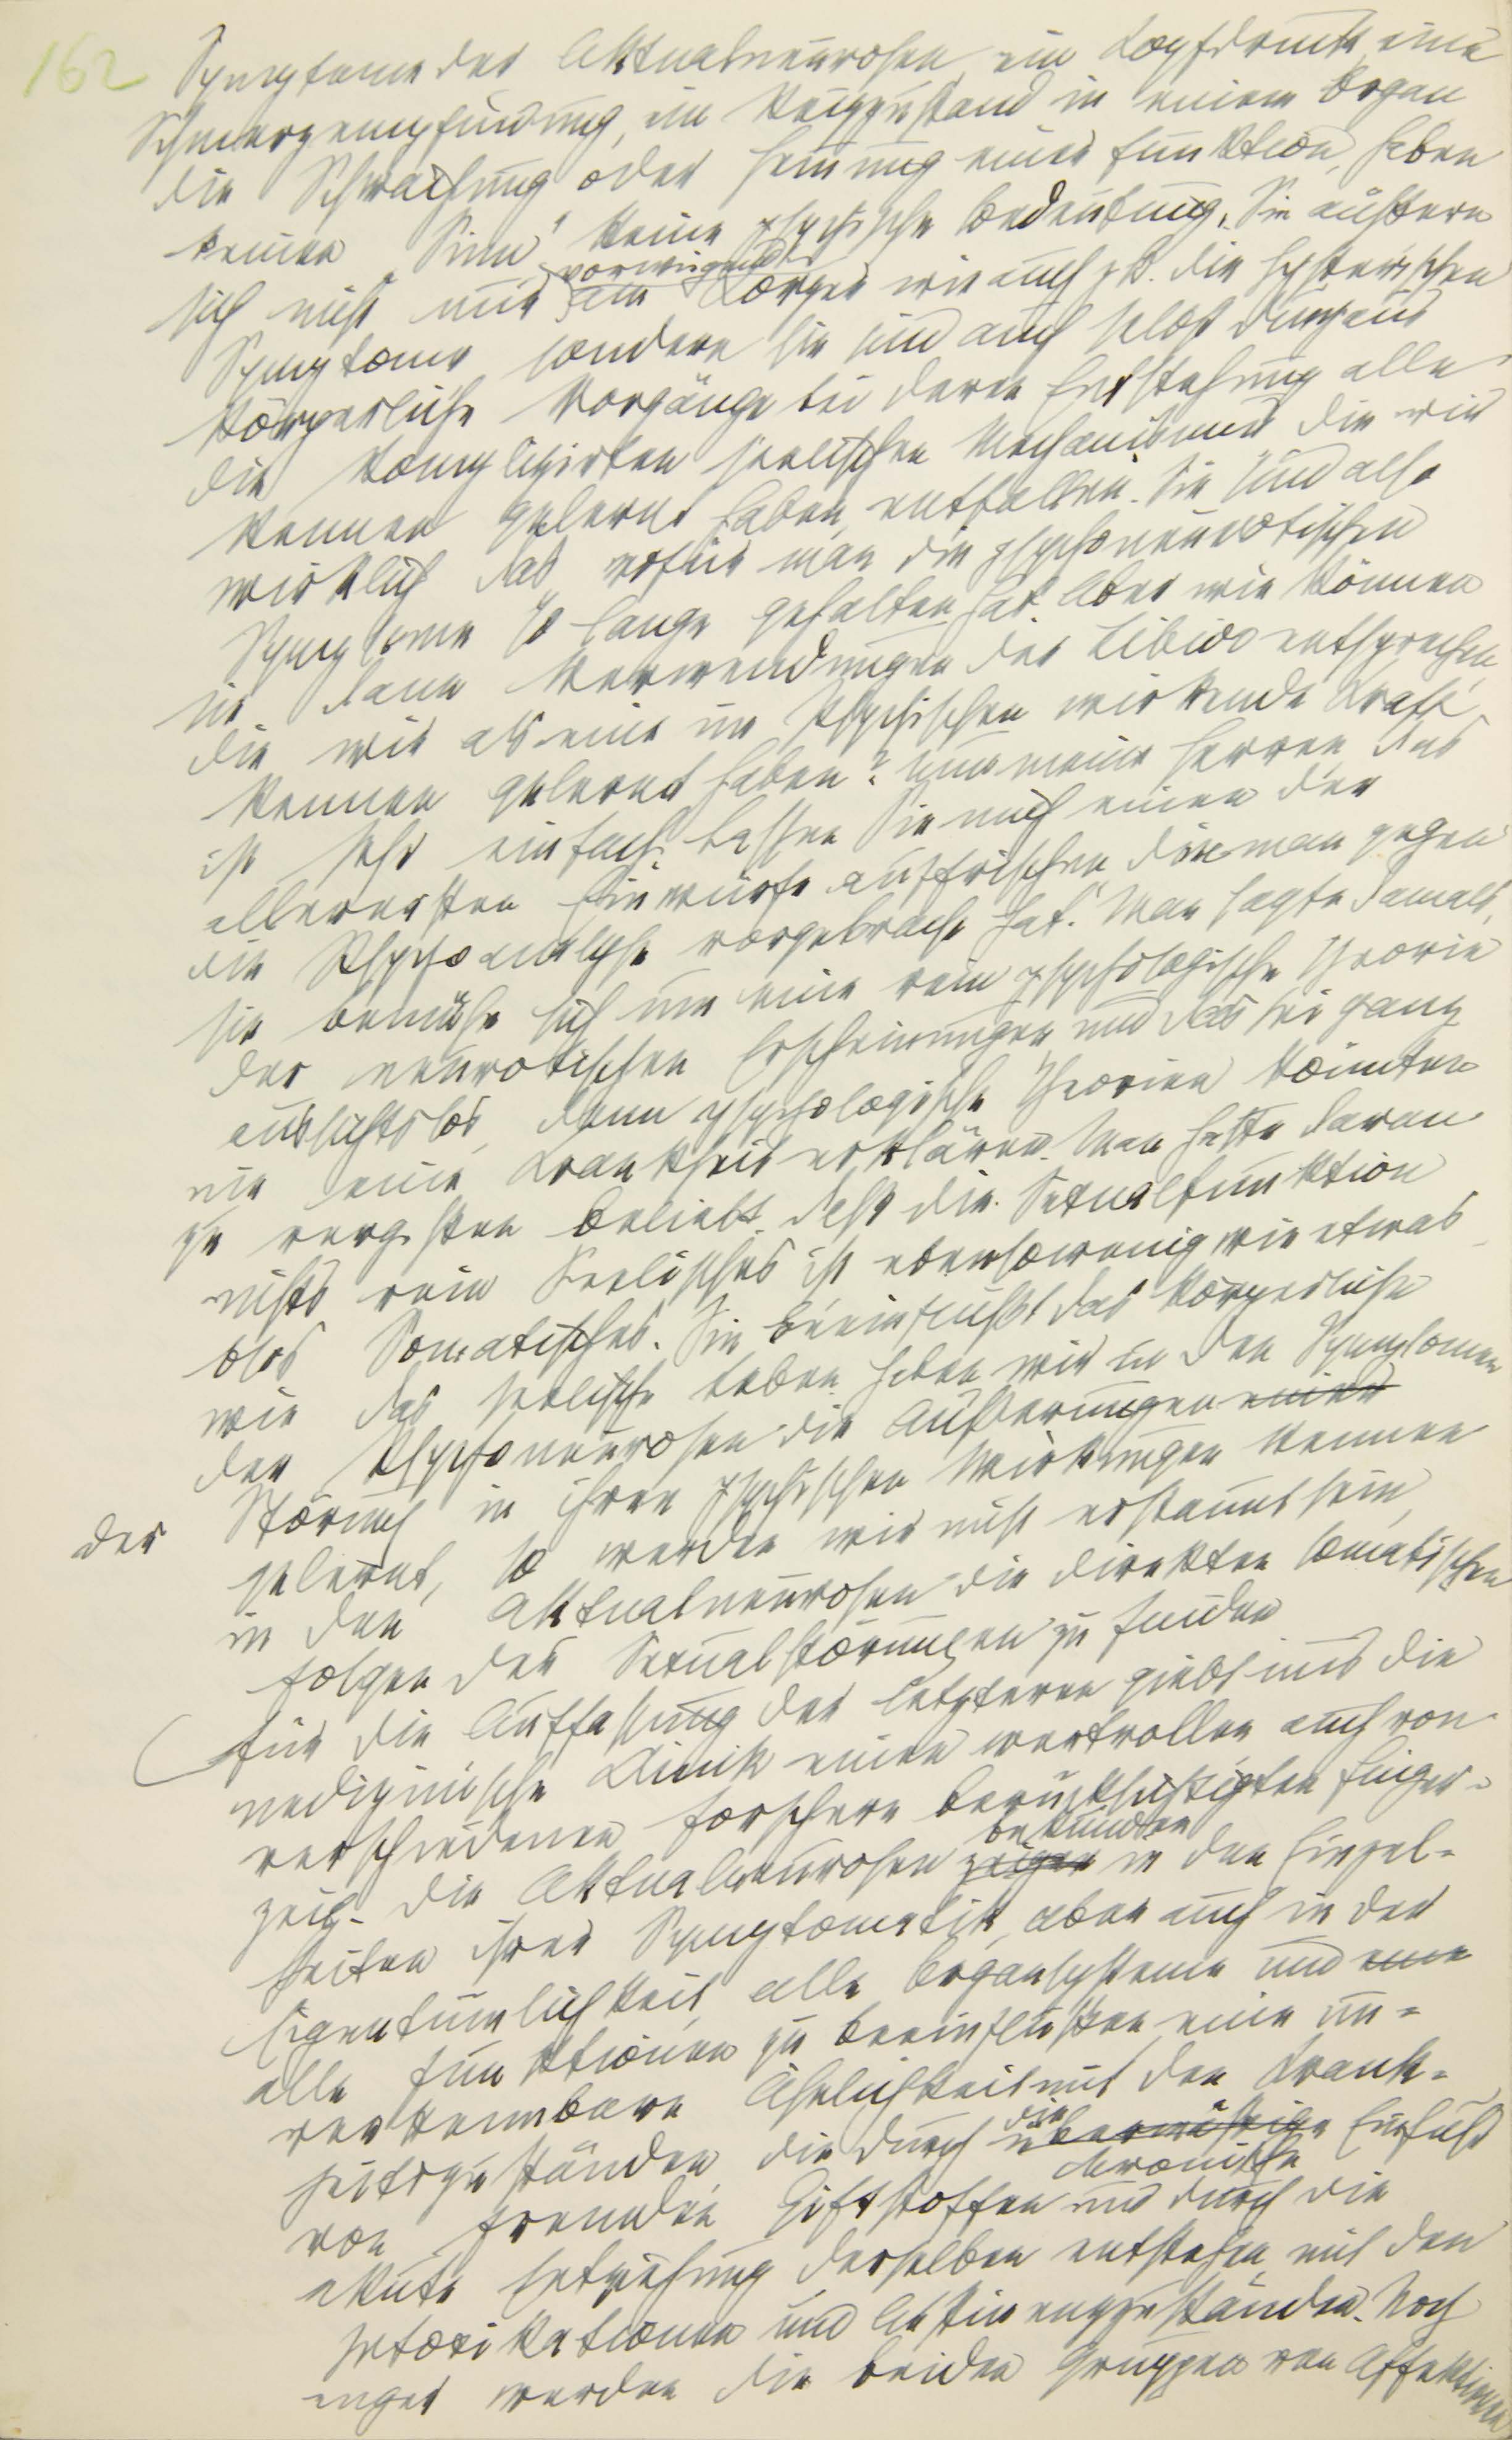 162
Symptome der Aktualneurosen, ein Kopfdruck, eine
Schmerzempfindung, ein Reizzustand in einem Organ
die Schwächung oder Hemmung einer Funktion, haben
keinen „Sinn“ keine psychische Bedeutung. Sie äußern
vorwiegend
sich nicht nur am Körper wie auch zB. die hysterischen
Symptome sondern sie sind auch selbst durchaus
körperliche Vorgänge bei deren Entstehung alle
die komplizirten seelischen Mechanismen die wir
kennen gelernt haben, entfallen. Sie sind also
wirklich das, wofür man die psychoneurotischen
Symptome so lange gehalten hat. Aber wie können
sie dann Verwendungen der Libido entsprechen,
die wir als eine im Psychischen wirkende Kraft
kennen gelernt haben? Nun meine Herren das
ist sehr einfach. Lassen Sie mich einen der
allerersten Einwürfe auffrischen, die man gegen
die Psychoanalyse vorgebracht hat. Man sagte damals,
sie bemühe sich um eine rein psychologische Theorie
der neurotischen Erscheinungen und das sei ganz
aussichtslos, denn psychologische Theorien könnten
nie eine Krankheit erklären. Man hatte daran
zu vergessen beliebt, daß die Sexualfunktion
nichts rein Seelisches ist ebensowenig wie etwas
blos Somatisches. Sie beeinflußt das körperliche
wie das seelische Leben. Haben wir in den Symptomen
der Psychoneurosen die Äußerungen einer
der Störung in ihren psychischen Wirkungen kennen
gelernt, so werden wir nicht erstaunt sein,
in den Aktualneurosen die direkten somatischen
Folgen der Sexualstörungen zu finden
Für die Auffassung der letzteren giebt uns die
medizinische Klinik einen wertvollen auch von
verschiedenen Forschern berücksichtigten Finger-
bekunden
zeig. Die Aktualneurosen zeigen in den Einzel-
heiten ihrer Symptomatik, aber auch in der
Eigentümlichkeit, alle Organsysteme und eine
alle Funktionen zu beeinflussen eine un-
verkennbare Ähnlichkeit mit den Krank-
die
heitszuständen, die durch übermäßige Einfluß
chronische
von fremden Giftstoffen und durch die
akute Entziehung derselben entstehen, mit den
Intoxikationen und Abstinenzzuständen. Noch
enger werden die beiden Gruppen von Affektionen